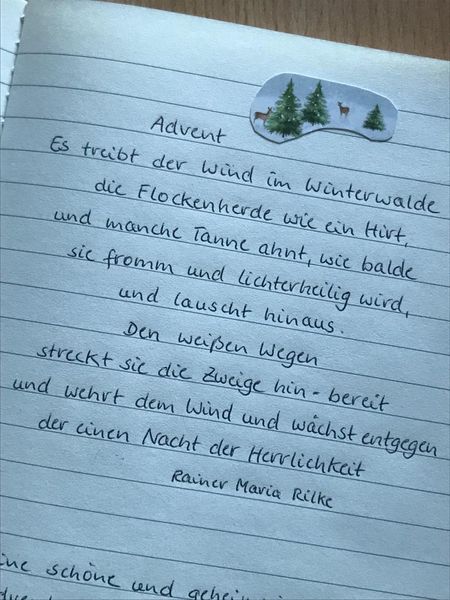 Advent
Es treibt der Wind im Winterwalde
die Flockenherde wie ein Hirt,
und manche Tanne ahnt, wie balde
sie fromm und lichterheilig wird,
und lauscht hinaus.
Den weißen Wegen
streckt sie die Zweige hin - bereit
und wehrt dem Wind und wächst entgegen
der einen Nacht der Herrlichkeit
Rainer Maria Rilke
schöne und